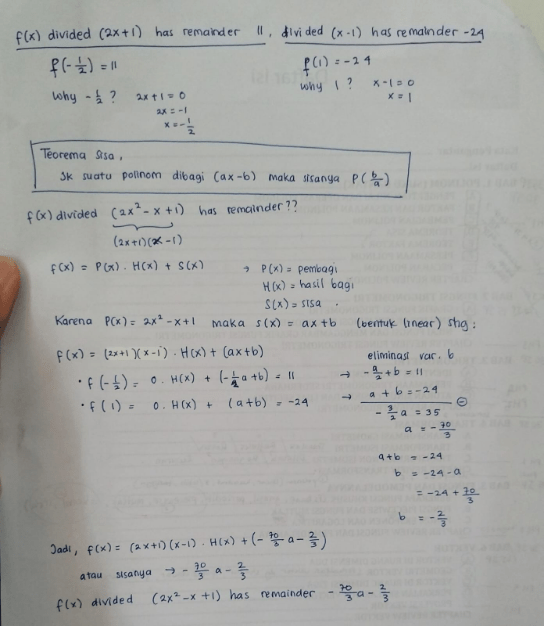 f(x) divided (2x+1) has remainder 11, divided (x-1) has remainder -24
f(-1/2) = 11
f(1) = -24
Why -1/2 ? 2x+1 = 0
2x = -1
x = -1/2
why 1 ? x-1 = 0
x = 1
Teorema Sisa,
Jk suatu polinom dibagi (ax-b) maka sisanya P(b/a)
f(x) divided (2x²-x+1) has remainder??
(2x+1)(x-1)
f(x) = P(x) . H(x) + S(x) → P(x) = pembagi
H(x) = hasil bagi
S(x) = sisa .
Karena P(x) = 2x²-x+1 maka s(x) = ax+b (bentuk linear) shg :
f(x) = (2x+1)(x-1) . H(x) + (ax+b)
• f(-1/2) = 0 . H(x) + (-1/2 a+b) = 11
• f(1) = 0 . H(x) + (a+b) = -24
eliminasi var. b
→ -a/2 + b = 11
→ a + b = -24 ⊖
-3/2 a = 35
a = -70/3
a+b = -24
b = -24-a
= -24 + 70/3
b = -2/3
Jadi, f(x) = (2x+1)(x-1) . H(x) + (-70/3 a - 2/3)
atau sisanya → -70/3 a - 2/3
f(x) divided (2x²-x+1) has remainder -70/3 a - 2/3